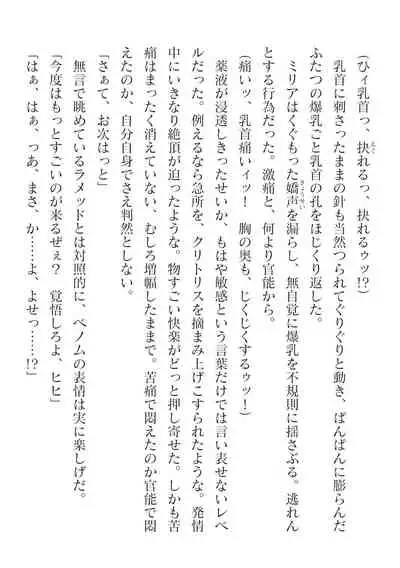 (ひィ乳首っ、抉れるっ、抉れるゥッ!?)
乳首に刺さったままの針も当然つられてぐりぐりと動き、ぱんぱんに膨らんだ
ふたつの爆乳ごと乳首の孔をほじくり返した。
ミリアはくぐもった嬌声を漏らし、無自覚に爆乳を不規則に揺さぶる。逃れん
とする行為だった。激痛と、何より官能から。
(痛いッ、乳首痛いィッ! 胸の奥も、じくじくするゥッ!)
薬液が浸透しきったせいか、もはや敏感という言葉だけでは言い表せないレベ
ルだった。例えるなら急所を、クリトリスを摘まみ上げこすられたような。発情
中にいきなり絶頂が迫ったような。物すごい快楽がどっと押し寄せた。しかも苦
痛はまったく消えていない、むしろ増幅したままで。苦痛で悶えたのか官能で悶
えたのか、自分自身でさえ判然としない。
「さぁて、お次はっと」
無言で眺めているラメッドとは対照的に、ベノムの表情は実に楽しげだ。
「今度はもっとすごいのが来るぜぇ? 覚悟しろよ、ヒヒ」
「はぁ、はぁ、っあ、まさ、か……よ、よせっ……!?」